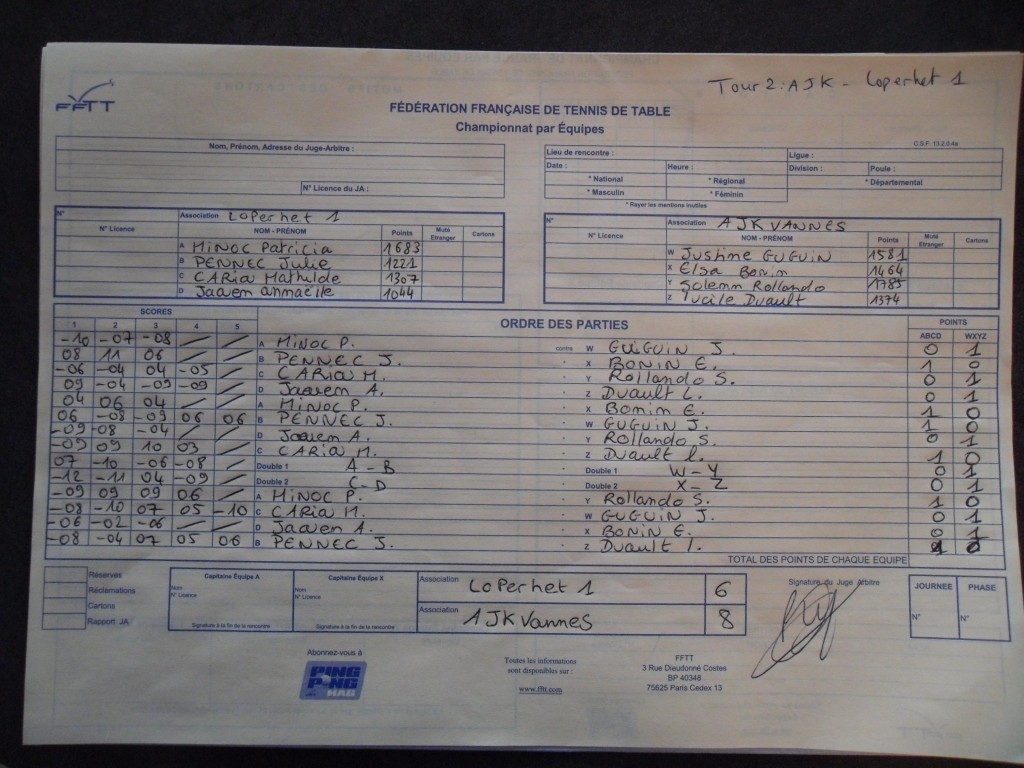 Tour 2 : AJK - Loperhet 1
FFTT
FÉDÉRATION FRANÇAISE DE TENNIS DE TABLE
Championnat par Équipes
C.S.F. 13.2.0-6a
Nom, Prénom, Adresse du Juge-Arbitre :
N° Licence du JA :
Lieu de rencontre : Ligue :
Date : Heure : Division : Poule :
* National * Régional * Départemental
* Masculin * Féminin
* Rayer les mentions inutiles
N° Association LOPerhet 1
N° Licence NOM - PRÉNOM Points Muté Etranger Cartons
A MINOC Patricia 1683
B PENNEC Julie 1221
C CARIA Mathilde 1307
D Jaouen Anmaëlle 1044
N° Association AJK VANNES
N° Licence NOM - PRÉNOM Points Muté Etranger Cartons
W Justine GUGUIN 1581
X Elsa Bonin 1464
Y Solenn Rollando 1785
Z Lucile Duault 1374
SCORES ORDRE DES PARTIES POINTS
1 2 3 4 5 ABCD WXYZ
-10 -07 -08 / / A MINOC P. contre W GUIGUIN J. 0 1
08 11 06 / / B PENNEC J. X BONIN E. 1 0
-06 -04 04 -05 / C CARIA M. Y Rollando S. 0 1
09 -04 -09 -09 / D Jaouen A. Z Duault L. 0 1
04 06 04 / / A MINOC P. X Bonin E. 1 0
06 -08 -09 06 06 B PENNEC J. W GUGUIN J. 1 0
-09 -08 -04 / / D Jaouen A. Y Rollando S. 0 1
-09 09 10 03 / C CARIA M. Z Duault L. 1 0
07 -10 -06 -08 / Double 1 A - B Double 1 W - Y 0 1
-12 -11 04 -09 / Double 2 C - D Double 2 X - Z 0 1
-09 09 09 06 / A MINOC P. Y Rollando S. 1 0
-08 -10 07 05 -10 C CARIA M. W GUGUIN J. 0 1
-06 -02 -06 / / D Jaouen A. X BONIN E. 0 1
-08 -04 07 05 06 B PENNEC J. Z Duault L. 1 0
TOTAL DES POINTS DE CHAQUE EQUIPE
Réserves
Réclamations
Cartons
Rapport JA
Capitaine Équipe A
Nom
N° Licence
Signature à la fin de la rencontre
Capitaine Équipe X
Nom
N° Licence
Signature à la fin de la rencontre
Association LOPerhet 1 6
Association AJK Vannes 8
Signature du Juge Arbitre
JOURNEE PHASE
N° N°
Abonnez-vous à
PING PONG MAG
Toutes les informations
sont disponibles sur :
www.fftt.com
FFTT
3 Rue Dieudonné Costes
BP 40348
75625 Paris Cedex 13